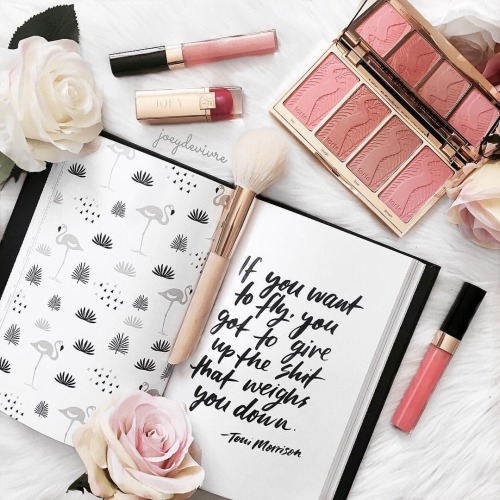 JOEY
joeydevivre
tarte
tarte
tarte
If you want
to fly, you
got to give
up the shit
that weighs
you down.
—Toni Morrison